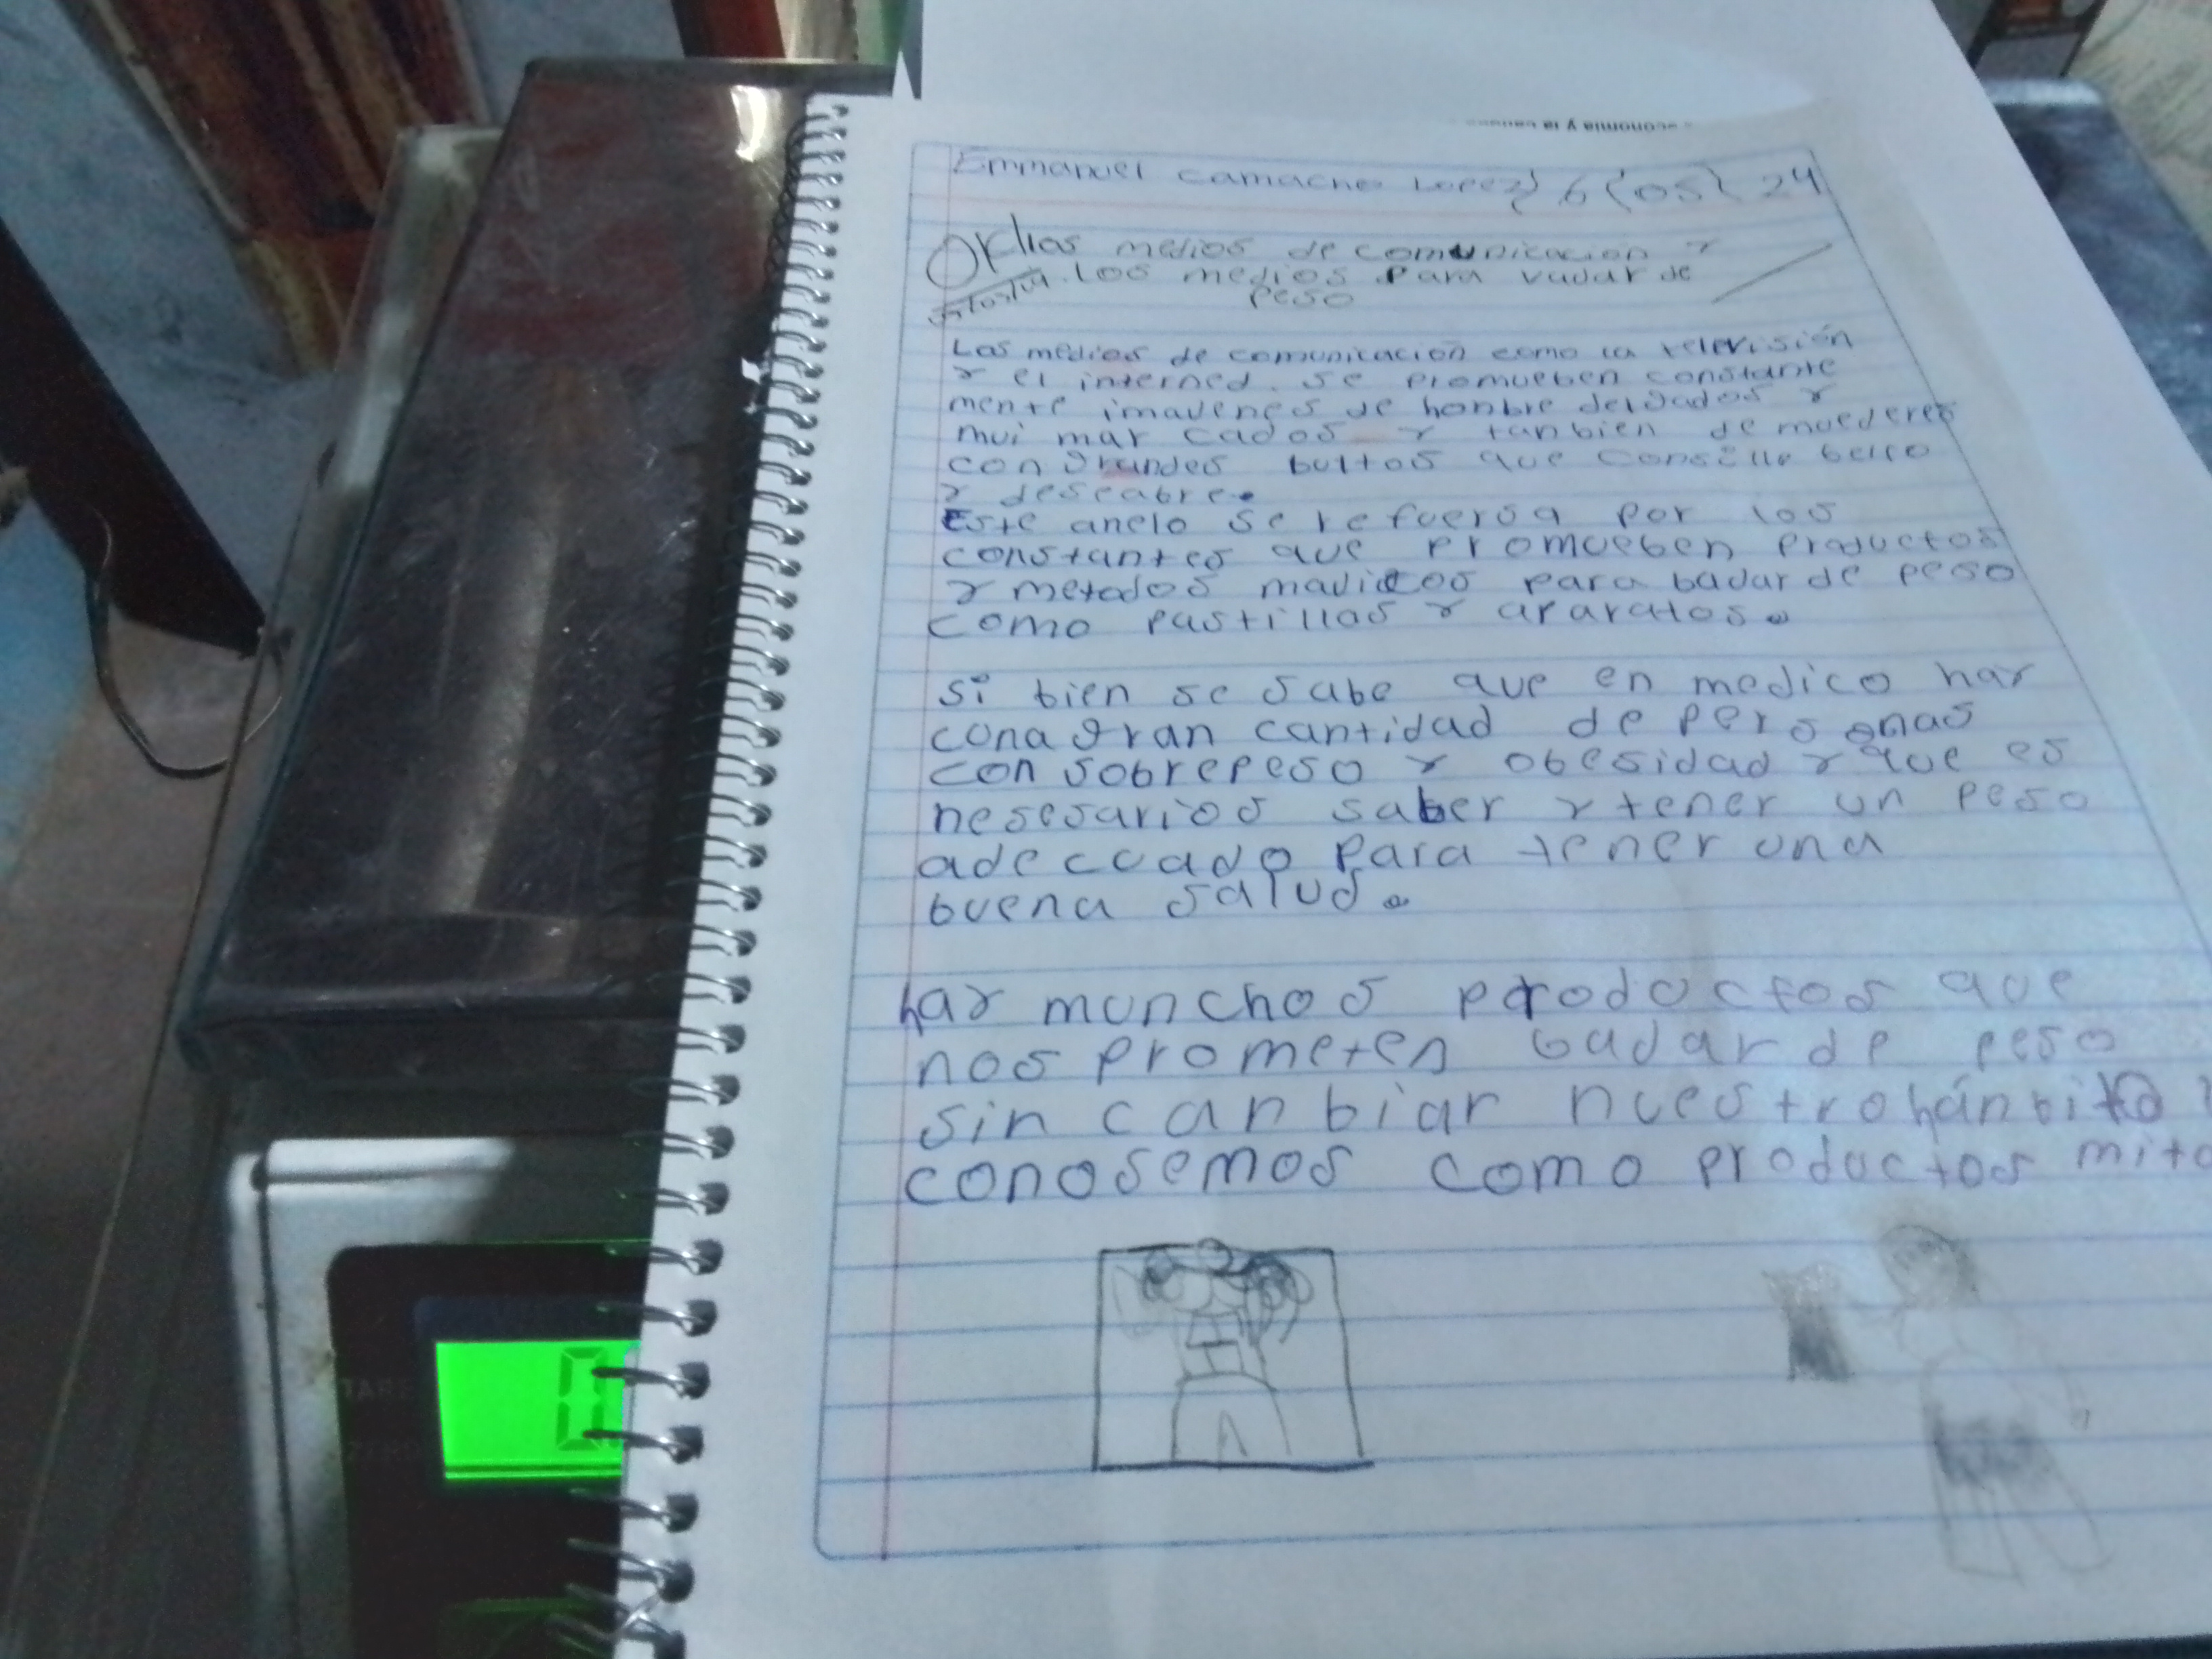 Emmanuel camacho Lopez} 6 (05( 24
OK los medios de comunicacion y
los medios para vadar de
peso
Los medios de comunicación como la televisión
y el interned. se promueben constante
mente imavenes de honbre delgados y
mui mar cados y tanbien de muederes
con grandes bultos que
y deseable.
Este anelo se refuersa por los
constantes que promueben productos
y metodos para badar de peso
como pastillas y aparatos.
si bien se sabe que en medico hay
cona gran cantidad de personas
con sobrepeso y obesidad y que es
nesesarios saber y tener un peso
adecuado para tener una
buena salud.
hay munchos productos que
nos prometen badar de peso
sin canbiar nuestro hánbito
conosemos como productos mito
0